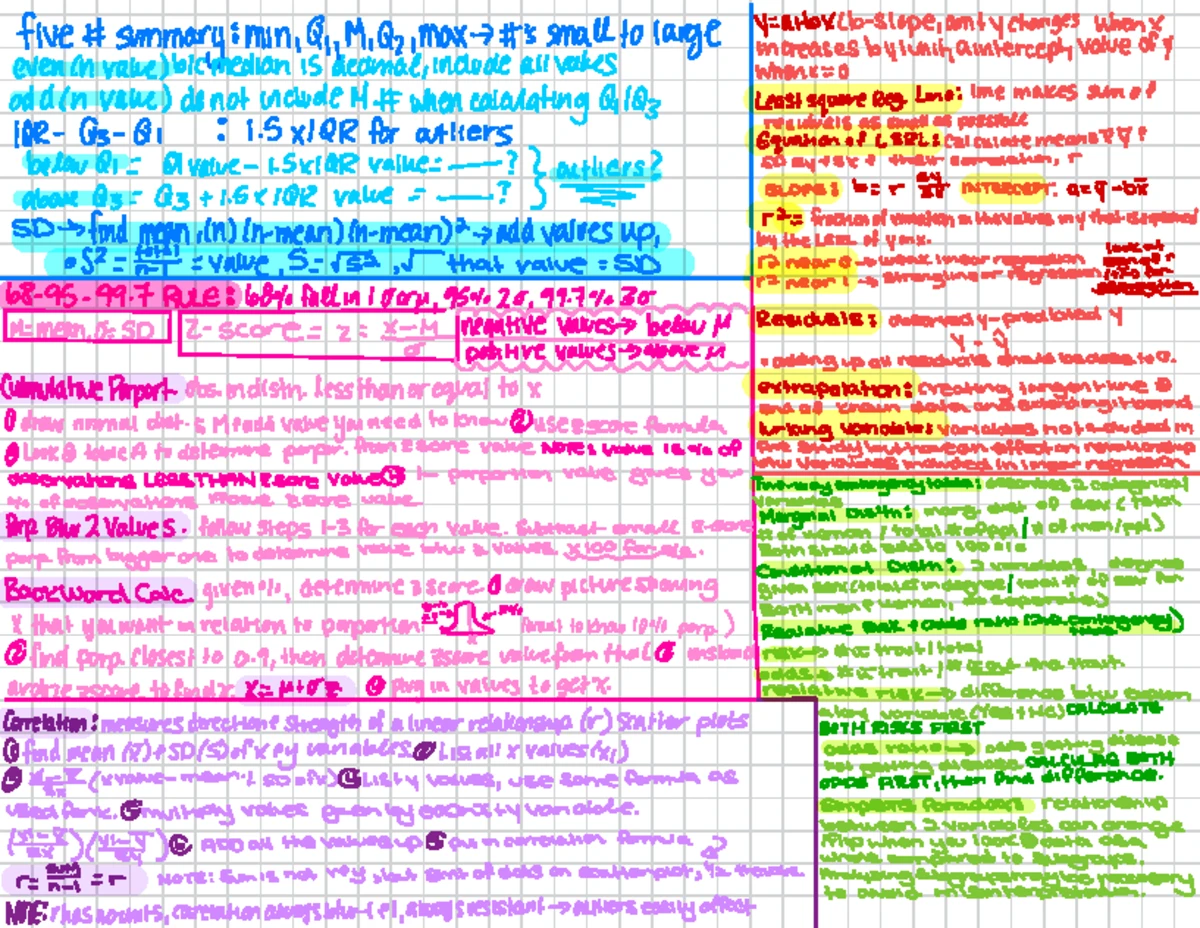 five # summary: min, Q1, M, Q2, max → #'s small to large
even (n value) b/c median is decimal, include all values
odd (n value) do not include M # when calculating Q1/Q3
IQR - Q3 - Q1 : 1.5 x IQR for outliers
below Q1 = Q1 value - 1.5xIQR value = ——? } outliers?
above Q3 = Q3 + 1.5 x IQR value = ——?
SD → find mean, (n) (n-mean) (n-mean)² → add values up,
• S² = total/n-1 = value, S = √S², √ that value = SD
68-95-99.7 RULE: 68% fall in 1 σ of μ, 95% 2σ, 99.7% 3σ
M = mean, σ = SD
Z-score = z = x-M/σ
negative values → below M
positive values → above M
Cumulative Porport. obs. in distn. less than or equal to x
① draw normal dist. & M & add value you need to know ② use z score formula
③ Look @ table A to determine porpor. from z score value NOTE: value is % of
observations LESS THAN z score value ④ 1- proportion value gives you
% of observations above z score value
Porp Btw 2 Values. follow steps 1-3 for each value. Subtract small z-score
porp from bigger one to determine value btw 2 values x100 for ans.
Backward Calc. given %, determine z score ① draw picture showing
X that you want in relation to porportion (want to know 10% porp.)
② find porp closest to 0.9, then determine z score value from that ③
z score to find x x = μ + σz ④ plug in values to get x.
Correlation: measures direction & strength of a linear relationship (r) scatter plots
① find mean (x̄) & SD (S) of x & y variables ② List all x values (xi)
③ xi - x̄/sx (x value - mean ÷ SD of x) ④ List y values, use same formula as
used for x. ⑤ multiply values given by each x & y variable.
(xi - x̄/sx)(yi - ȳ/sy) ⑥ ADD all the values up ⑤ put in correlation formula
r = sum/n-1 = r
NOTE: r has no units, correlation always btw -1 & 1, always resistant → outliers easily affect
y = a + bx (b-slope, amt y changes when x
increases by 1 unit, a intercept, value of y
when x = 0
Least square Reg. Line: line makes sum of
residuals as small as possible
Equation of LSRL: calculate means x̄ ȳ &
SD sy & sx & their correlation, r
SLOPE: b = r sy/sx INTERCEPT: a = ȳ - bx̄
r² = fraction of variation in the values in y that is explained
by the LSRL of y on x.
r² near 0 → weak linear regression
r² near 1 → strong linear regression
Residuals: observed y - predicted y
y - ŷ
• adding up all residuals should be close to 0.
extrapolation: creating longer line @
end of known data and extending it beyond
lurking variables: variables not included in
the study but have an effect on relationship
btw variables included in linear regression
Two-way contingency table: 2 categorical
variables
Marginal Distn: marg. dist of sex (total
# of women / total # of ppl / # of men/ppl)
Both should add to 100%
Conditional Distn: 2 variables, degree
given sex (
both men & women, do separately
Relative risk & odds ratio (2x2 contingency)
risk → # w trait / total
odds → # w trait / # w out the trait
relative risk → difference btw
CALCULATE
BOTH RISKS FIRST
odds ratio → odds getting disease
not getting disease. CALCULATE BOTH
ODDS FIRST, then find difference.
Simpsons Paradox: relationship
between 2 variables can change
flip when you look @ data as a
whole compared to subgroups.